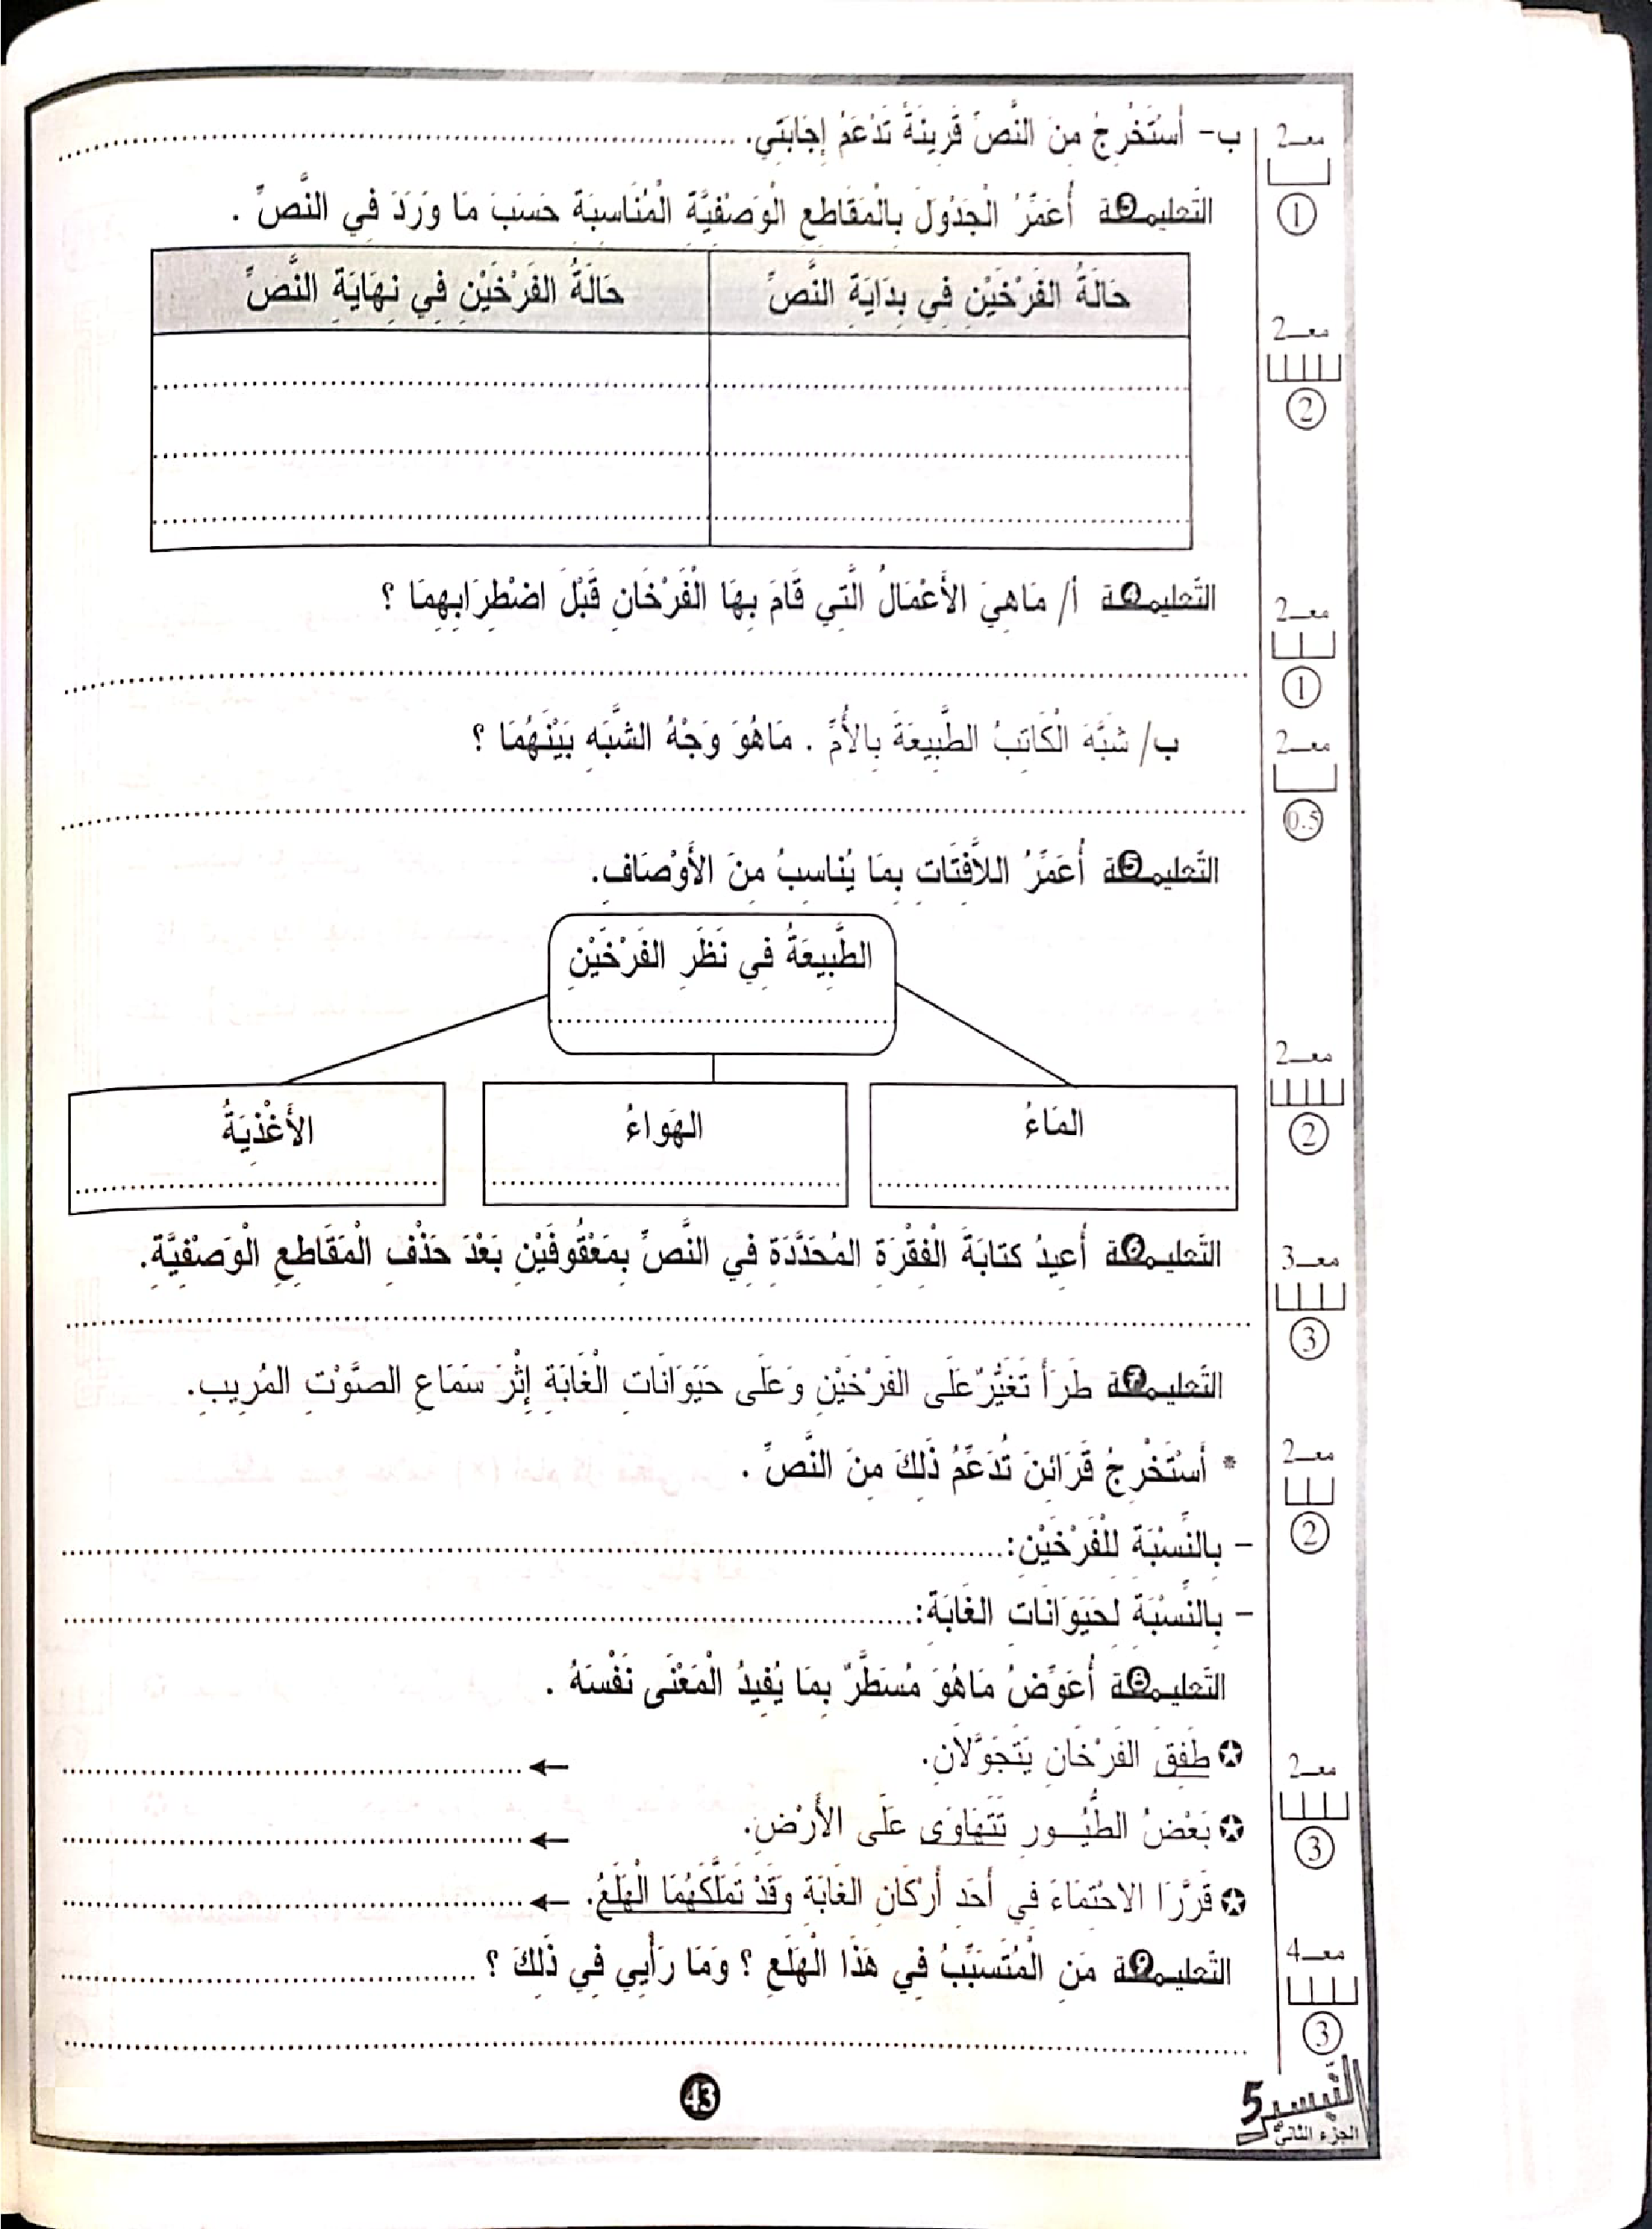 ب- أَسْتَخْرِجُ مِنَ النَّصِّ قَرِينَةً تَدْعَمُ إِجَابَتِي. ........................................
معـ2
1
التّعليمـ3ـة أُعَمِّرُ الْجَدْوَلَ بِالْمَقَاطِعِ الْوَصْفِيَّةِ الْمُنَاسِبَةِ حَسَبَ مَا وَرَدَ فِي النَّصِّ .
حَالَةُ الفَرْخَيْنِ فِي بِدَايَةِ النَّصِّ
حَالَةُ الفَرْخَيْنِ فِي نِهَايَةِ النَّصِّ
معـ2
2
التّعليمـ4ـة أ/ مَاهِيَ الأَعْمَالُ الَّتِي قَامَ بِهَا الْفَرْخَانِ قَبْلَ اضْطِرَابِهِمَا ؟
معـ2
1
ب/ شَبَّهَ الْكَاتِبُ الطَّبِيعَةَ بِالأُمِّ . مَاهُوَ وَجْهُ الشَّبَهِ بَيْنَهُمَا ؟
معـ2
0.5
التّعليمـ5ـة أُعَمِّرُ اللاَّفِتَاتِ بِمَا يُنَاسِبُ مِنَ الأَوْصَافِ.
الطَّبِيعَةُ فِي نَظَرِ الفَرْخَيْنِ
المَاءُ
الهَوَاءُ
الأَغْذِيَةُ
معـ2
2
التّعليمـ6ـة أُعِيدُ كِتَابَةَ الْفِقْرَةِ المُحَدَّدَةِ فِي النَّصِّ بِمَعْقُوفَيْنِ بَعْدَ حَذْفِ الْمَقَاطِعِ الْوَصْفِيَّةِ.
معـ3
3
التّعليمـ7ـة طَرَأَ تَغَيُّرٌ عَلَى الفَرْخَيْنِ وَعَلَى حَيَوَانَاتِ الْغَابَةِ إِثْرَ سَمَاعِ الصَّوْتِ المُرِيبِ.
* أَسْتَخْرِجُ قَرَائِنَ تُدَعِّمُ ذَلِكَ مِنَ النَّصِّ .
معـ2
2
- بِالنِّسْبَةِ لِلْفَرْخَيْنِ:........................................
- بِالنِّسْبَةِ لِحَيَوَانَاتِ الغَابَةِ:........................................
التّعليمـ8ـة أُعَوِّضُ مَاهُوَ مُسَطَّرٌ بِمَا يُفِيدُ الْمَعْنَى نَفْسَهُ .
✪ طَفِقَ الفَرْخَانِ يَتَجَوَّلاَنِ. ← ........................................
✪ بَعْضُ الطُّيُـورِ تَتَهَاوَى عَلَى الأَرْضِ. ← ........................................
✪ قَرَّرَا الاحْتِمَاءَ فِي أَحَدِ أَرْكَانِ الغَابَةِ وَقَدْ تَمَلَّكَهُمَا الْهَلَعُ. ← ........................................
معـ2
3
التّعليمـ9ـة مَنِ الْمُتَسَبِّبُ فِي هَذَا الْهَلَعِ ؟ وَمَا رَأْيِي فِي ذَلِكَ ؟ ........................................
معـ4
3
43
التّيسير 5
الجزء الثاني